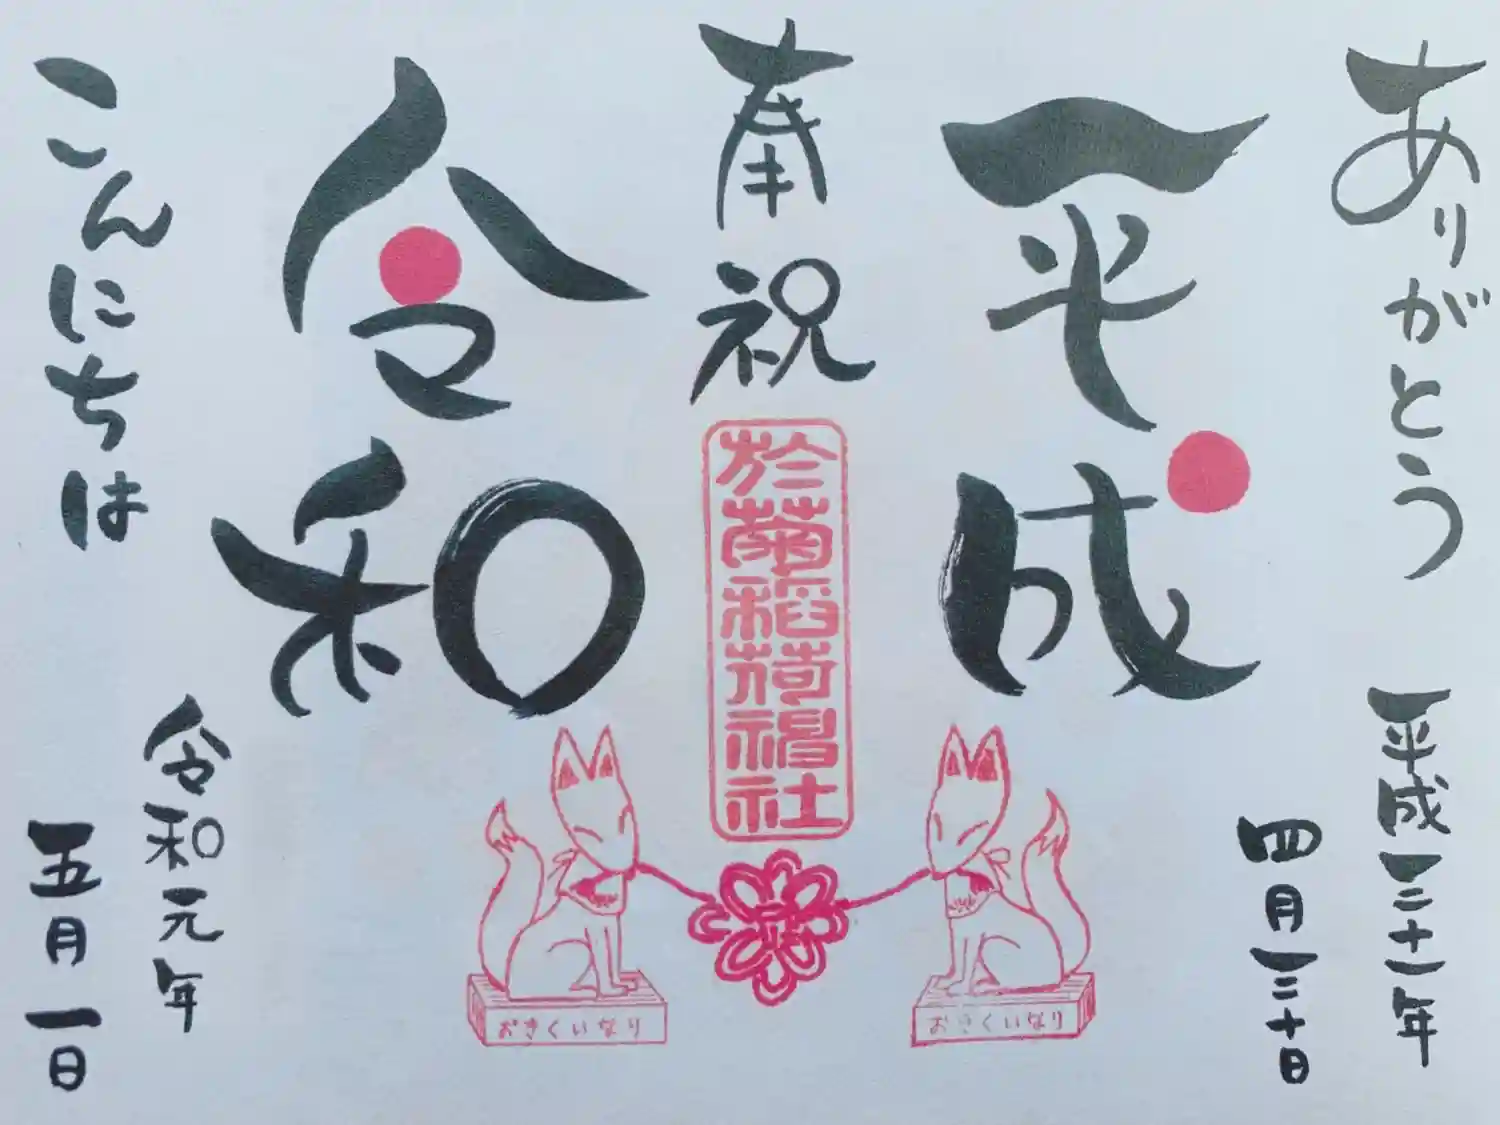 ありがとう
平成
奉祝
令和
こんにちは
平成三十一年
四月三十日
於菊稲荷神社
令和元年
五月一日
おきくいなり
おきくいなり